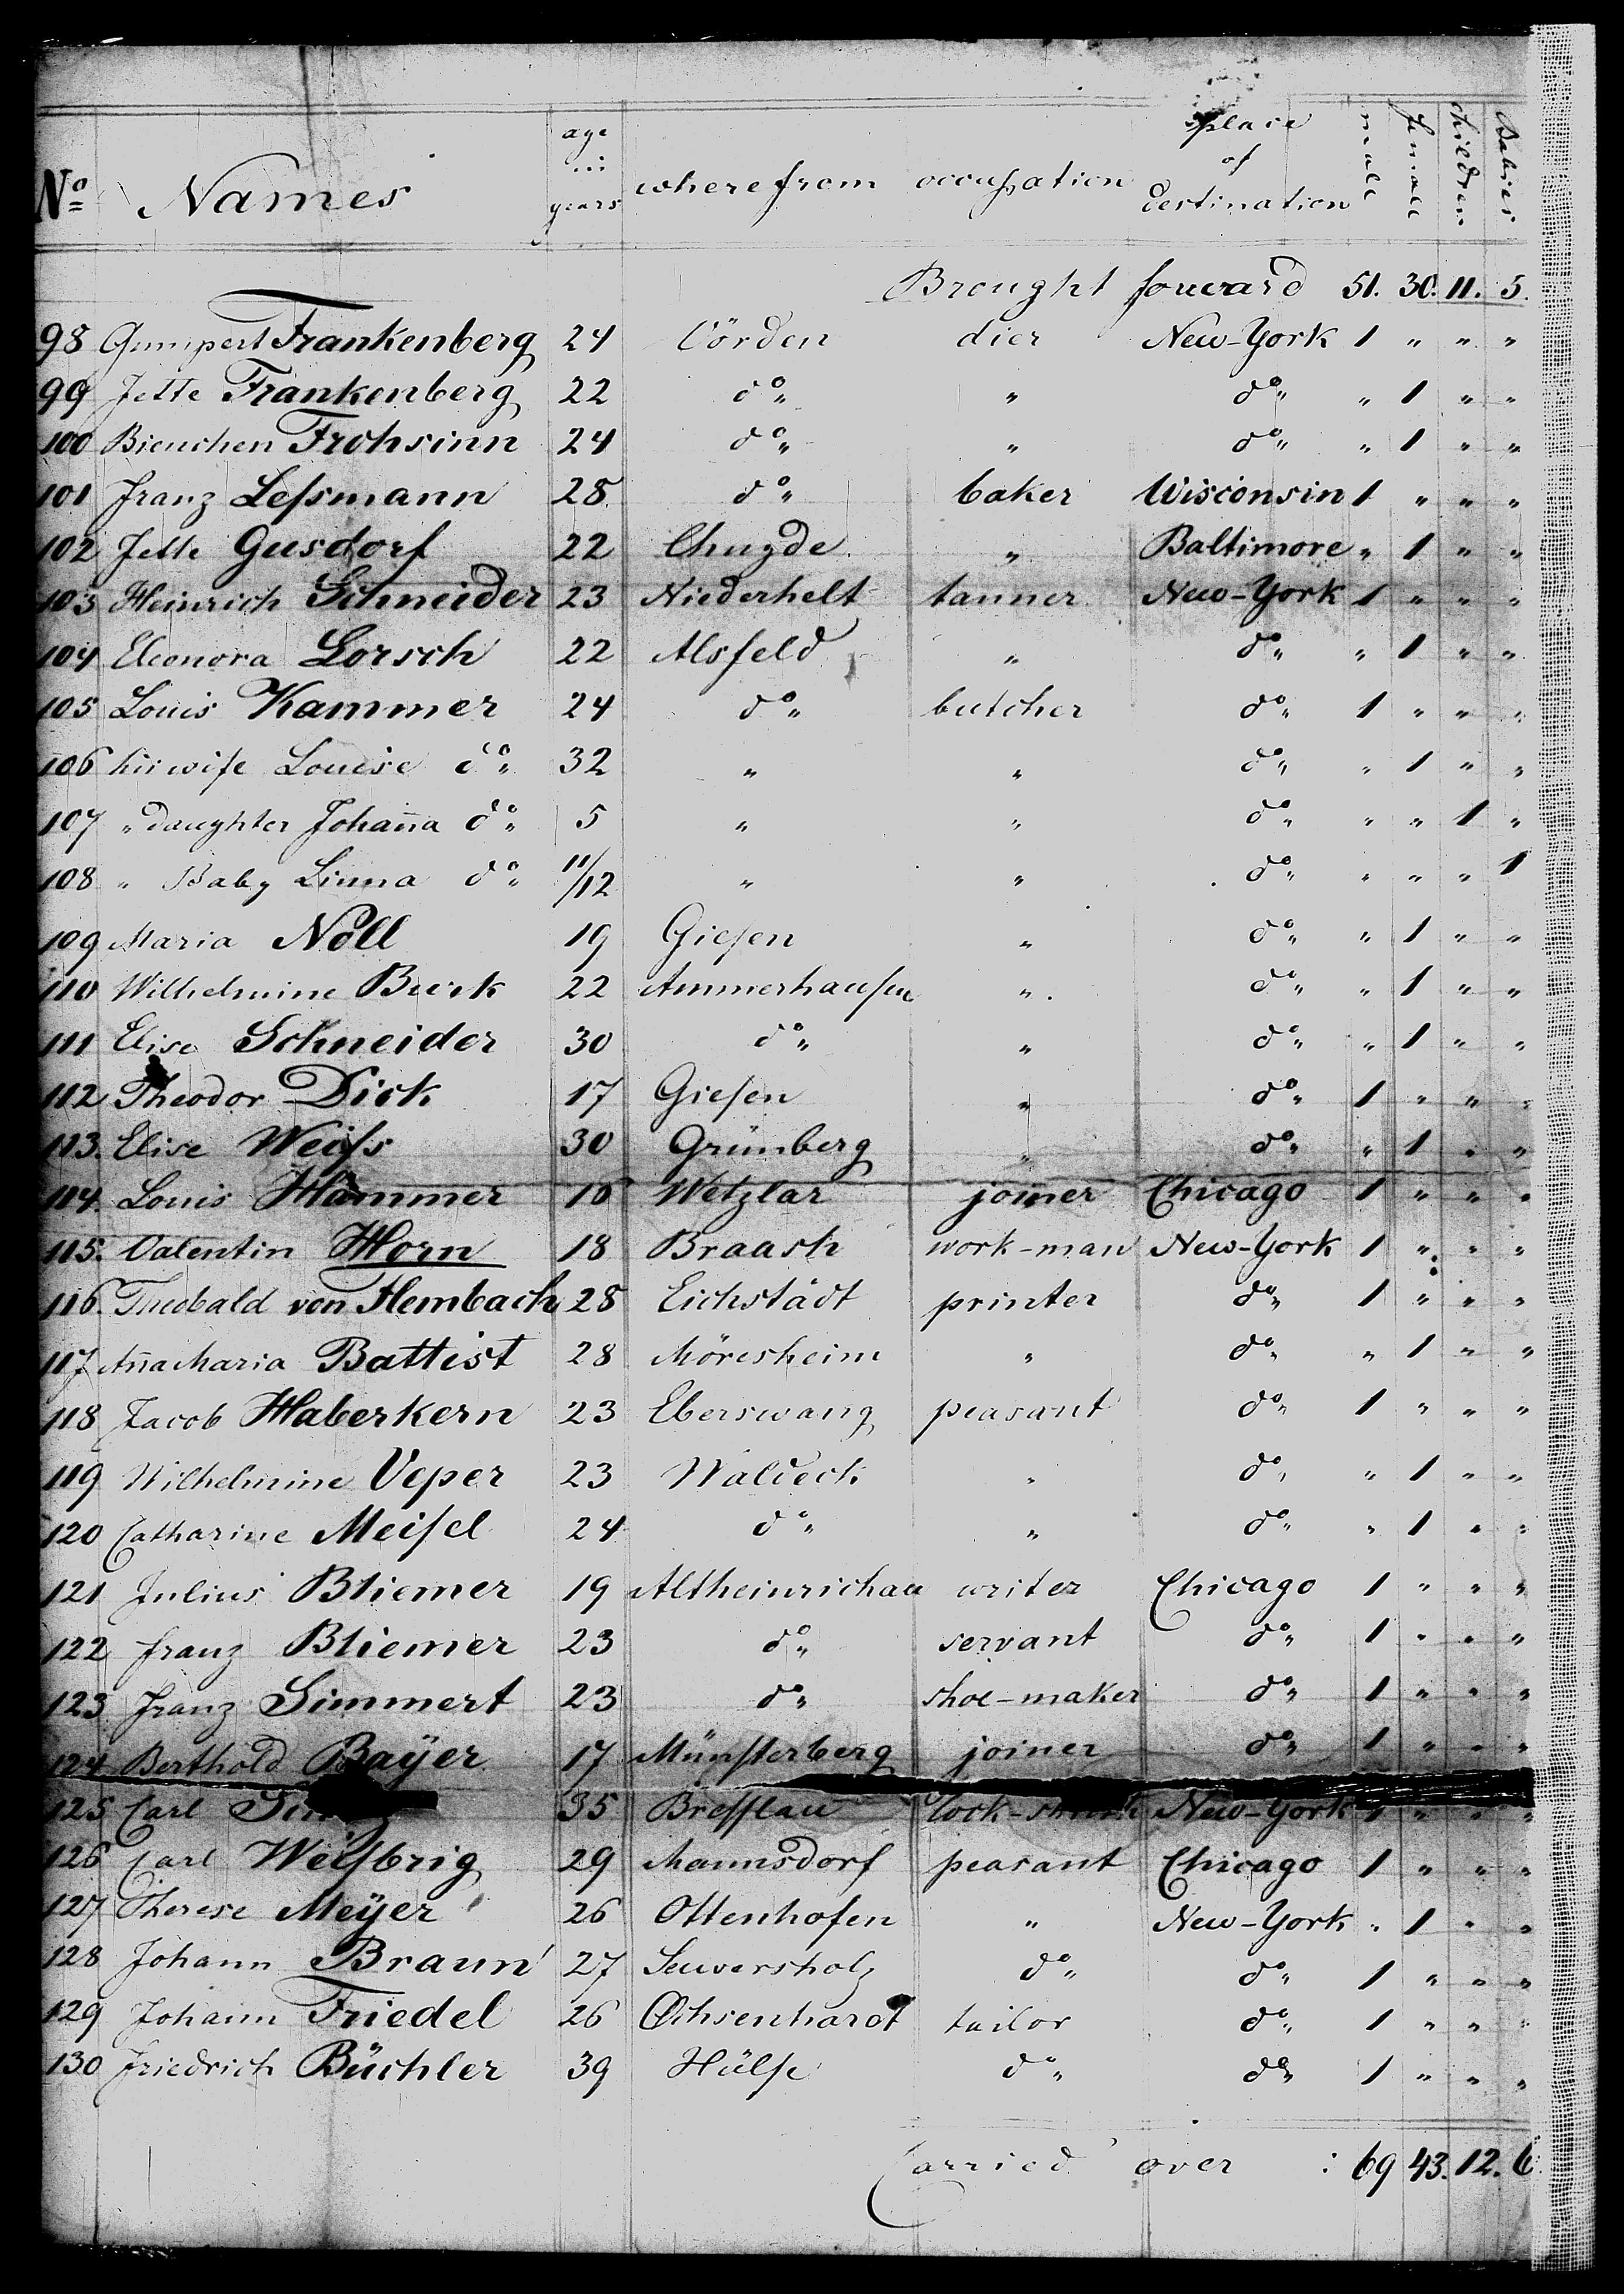 No Names age in years where from occupation place of destination male female children Babies
Brought forward 51. 30. 11. 5.
98 Gumpert Frankenberg 24 Vörden dier New-York 1 " " "
99 Jette Frankenberg 22 do " " do " " 1 " "
100 Bienchen Frohsinn 24 do " " do " " 1 " "
101 Franz Leſsmann 28 do " baker Wisconsin 1 " " "
102 Jette Gusdorf 22 " Baltimore " 1 " "
103 Heinrich Schneider 23 Niederhelt tanner New-York 1 " " "
104 Eleonora Lorsch 22 Alsfeld " do " " 1 " "
105 Louis Kammer 24 do " butcher do " 1 " " "
106 his wife Louise do " 32 " " do " " 1 " "
107 " daughter Johaña do " 5 " " do " " " 1 "
108 " Baby Linna do " 11/12 " " do " " " " 1
109 Maria Nöll 19 Gieſen " do " " 1 " "
110 Wilhelmine 22 Ammerhauſen " do " " 1 " "
111 Elise Schneider 30 do " " do " " 1 " "
112 Theodor Dick 17 Gieſen " do " 1 " " "
113. Elise Weiſs 30 Grünberg " do " " 1 " "
114. Louis Hammer 18 Wetzlar joiner Chicago 1 " " "
115. Valentin Horn 18 Braash work-man New-York 1 " " "
116. Theobald von Hembach 28 Eichstädt printer do " 1 " " "
117 Aña Maria Battist 28 Möresheim " do " " 1 " "
118 Jacob Haberkern 23 Eberswang peasant do " 1 " " "
119 Wilhelmine Veper 23 Waldeck " do " " 1 " "
120 Catharine Meiſel 24 do " " do " " 1 " "
121 Julius Bliemer 19 Altheinrichau writer Chicago 1 " " "
122 franz Bliemer 23 do " servant do " 1 " " "
123 Franz Simmert 23 do " shoe-maker do " 1 " " "
124 Berthold Bayer 17 Münſterberg joiner do " 1 " " "
125 Carl 35 Breſſlau lock-smith New-York 1 " " "
126 Carl Weiſbrig 29 Mannsdorf peasant Chicago 1 " " "
127 Therese Meÿer 26 Ottenhofen " New-York " 1 " "
128 Johann Braun 27 Seuversholz do " do " 1 " " "
129 Johann Friedel 26 Ochsenhardt tailor do " 1 " " "
130 Friedrich Büchler 39 Hülſe do " do " 1 " " "
Carried over : 69 43. 12. 6